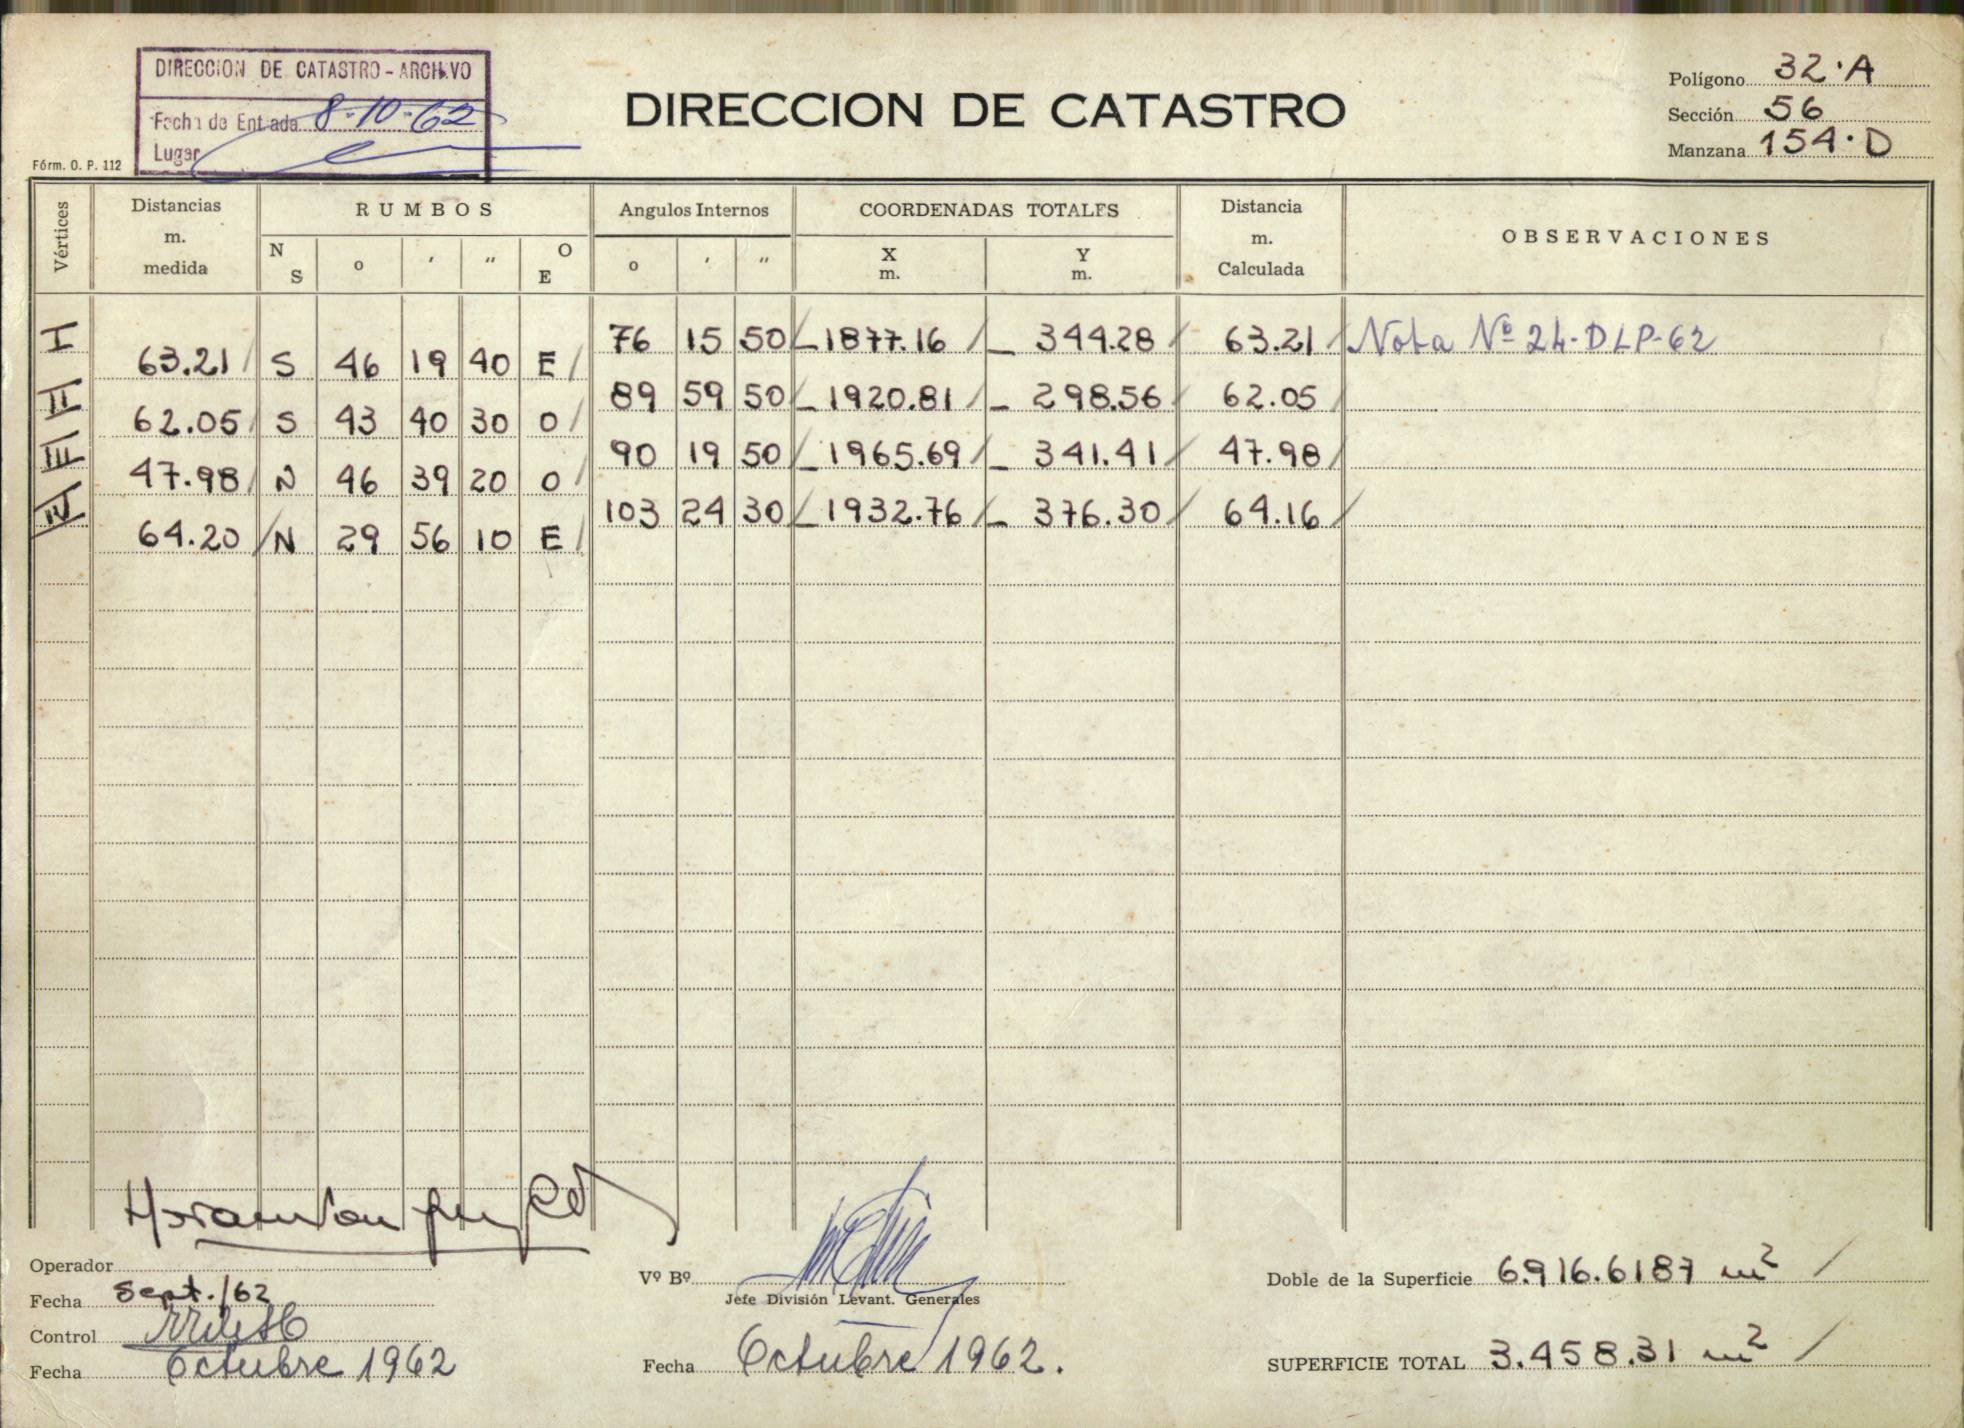 DIRECCION DE CATASTRO - ARCHIVO
Fecha de Entrada 8-10-62
Lugar
Fórm. O. P. 112
DIRECCION DE CATASTRO
Polígono 32·A
Sección 56
Manzana 154·D
Vértices Distancias m. medida RUMBOS N S o ′ ″ O E Angulos Internos o ′ ″ COORDENADAS TOTALES X m. Y m. Distancia m. Calculada OBSERVACIONES
I 76 15 50 - 1877.16 - 344.28 63.21 Nota Nº 24-DLP-62
63.21 S 46 19 40 E
II 89 59 50 - 1920.81 - 298.56 62.05
62.05 S 43 40 30 O
III 90 19 50 - 1965.69 - 341.41 47.98
47.98 N 46 39 20 O
IV 103 24 30 - 1932.76 - 376.30 64.16
64.20 N 29 56 10 E
Operador
Fecha Sept./62
Control
Fecha Octubre 1962
Vº Bº
Jefe División Levant. Generales
Fecha Octubre 1962.
Doble de la Superficie 6.916.6187 m²
SUPERFICIE TOTAL 3.458.31 m²